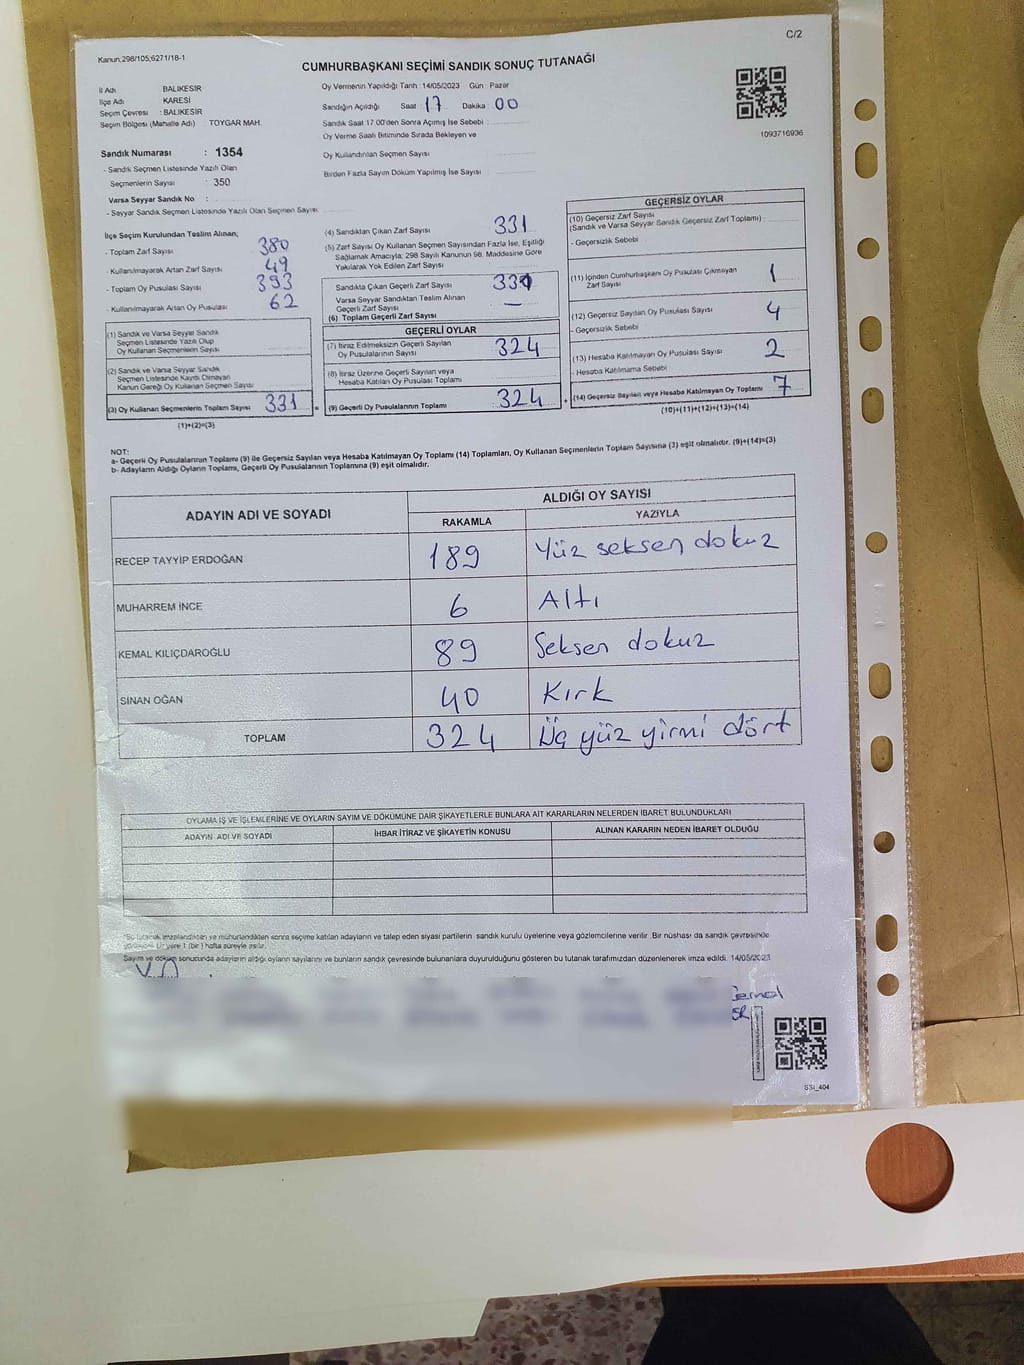 C/2
Kanun;298/105;6271/18-1
CUMHURBAŞKANI SEÇİMİ SANDIK SONUÇ TUTANAĞI
İl Adı BALIKESİR
İlçe Adı KARESİ
Seçim Çevresi : BALIKESİR
Seçim Bölgesi (Mahalle Adı) TOYGAR MAH.
Sandık Numarası : 1354
- Sandık Seçmen Listesinde Yazılı Olan
Seçmenlerin Sayısı : 350
Varsa Seyyar Sandık No :
- Seyyar Sandık Seçmen Listesinde Yazılı Olan Seçmen Sayısı
Oy Vermenin Yapıldığı Tarih 14/05/2023 Gün : Pazar
Sandığın Açıldığı Saat 17 Dakika : 00
Sandık Saat 17:00'den Sonra Açılmış İse Sebebi :
Oy Verme Suali Bitiminde Sırada Bekleyen ve
Oy Kullandırılan Seçmen Sayısı
Birden Fazla Sayım Döküm Yapılmış İse Sayısı
1093716936
İlçe Seçim Kurulundan Teslim Alınan;
- Toplam Zarf Sayısı 380
- Kullanılmayarak Artan Zarf Sayısı 49
- Toplam Oy Pusulası Sayısı 393
- Kullanılmayarak Artan Oy Pusulası 62
(1) Sandık ve Varsa Seyyar Sandık
Seçmen Listesinde Yazılı Olup
Oy Kullanan Seçmenlerin Sayısı
(2) Sandık ve Varsa Seyyar Sandık
Seçmen Listesinde Kayıtlı Olmayan
Kanun Gereği Oy Kullanan Seçmen Sayısı
(3) Oy Kullanan Seçmenlerin Toplam Sayısı 331 =
(1)+(2)=(3)
(4) Sandıktan Çıkan Zarf Sayısı 331
(5) Zarf Sayısı Oy Kullanan Seçmen Sayısından Fazla İse, Eşitliği
Sağlamak Amacıyla; 298 Sayılı Kanunun 98. Maddesine Göre
Yakılarak Yok Edilen Zarf Sayısı
Sandıkta Çıkan Geçerli Zarf Sayısı 331
Varsa Seyyar Sandıktan Teslim Alınan
Geçerli Zarf Sayısı —
(6) Toplam Geçerli Zarf Sayısı
GEÇERLİ OYLAR
(7) İtiraz Edilmeksizin Geçerli Sayılan
Oy Pusulalarının Sayısı 324
(8) İtiraz Üzerine Geçerli Sayılan veya
Hesaba Katılan Oy Pusulası Toplamı
(9) Geçerli Oy Pusulalarının Toplamı 324 +
GEÇERSİZ OYLAR
(10) Geçersiz Zarf Sayısı
(Sandık ve Varsa Seyyar Sandık Geçersiz Zarf Toplamı)
- Geçersizlik Sebebi
(11) İçinden Cumhurbaşkanı Oy Pusulası Çıkmayan
Zarf Sayısı 1
(12) Geçersiz Sayılan Oy Pusulası Sayısı 4
- Geçersizlik Sebebi
(13) Hesaba Katılmayan Oy Pusulası Sayısı 2
- Hesaba Katılmama Sebebi
(14) Geçersiz Sayılan veya Hesaba Katılmayan Oy Toplamı 7
(10)+(11)+(12)+(13)=(14)
NOT:
a- Geçerli Oy Pusulalarının Toplamı (9) ile Geçersiz Sayılan veya Hesaba Katılmayan Oy Toplamı (14) Toplamları, Oy Kullanan Seçmenlerin Toplam Sayısına (3) eşit olmalıdır. (9)+(14)=(3)
b- Adayların Aldığı Oyların Toplamı, Geçerli Oy Pusulalarının Toplamına (9) eşit olmalıdır.
ADAYIN ADI VE SOYADI ALDIĞI OY SAYISI
RAKAMLA YAZIYLA
RECEP TAYYİP ERDOĞAN 189 Yüz seksen dokuz
MUHARREM İNCE 6 Altı
KEMAL KILIÇDAROĞLU 89 Seksen dokuz
SİNAN OĞAN 40 Kırk
TOPLAM 324 Üç yüz yirmi dört
OYLAMA İŞ VE İŞLEMLERİNE VE OYLARIN SAYIM VE DÖKÜMÜNE DAİR ŞİKAYETLERLE BUNLARA AİT KARARLARIN NELERDEN İBARET BULUNDUKLARI
ADAYIN ADI VE SOYADI İHBAR İTİRAZ VE ŞİKAYETİN KONUSU ALINAN KARARIN NEDEN İBARET OLDUĞU
Bu tutanak imzalandıktan ve mühürlendikten sonra seçime katılan adayların ve talep eden siyasi partilerin sandık kurulu üyelerine veya gözlemcilerine verilir. Bir nüshası da sandık çevresinde
bir yere 1 (bir) hafta süreyle asılır.
Sayım ve döküm sonucunda adayların aldığı oyların sayılarını ve bunların sandık çevresinde bulunanlara duyurulduğunu gösteren bu tutanak tarafımızdan düzenlenerek imza edildi. 14/05/2023
SSI_404